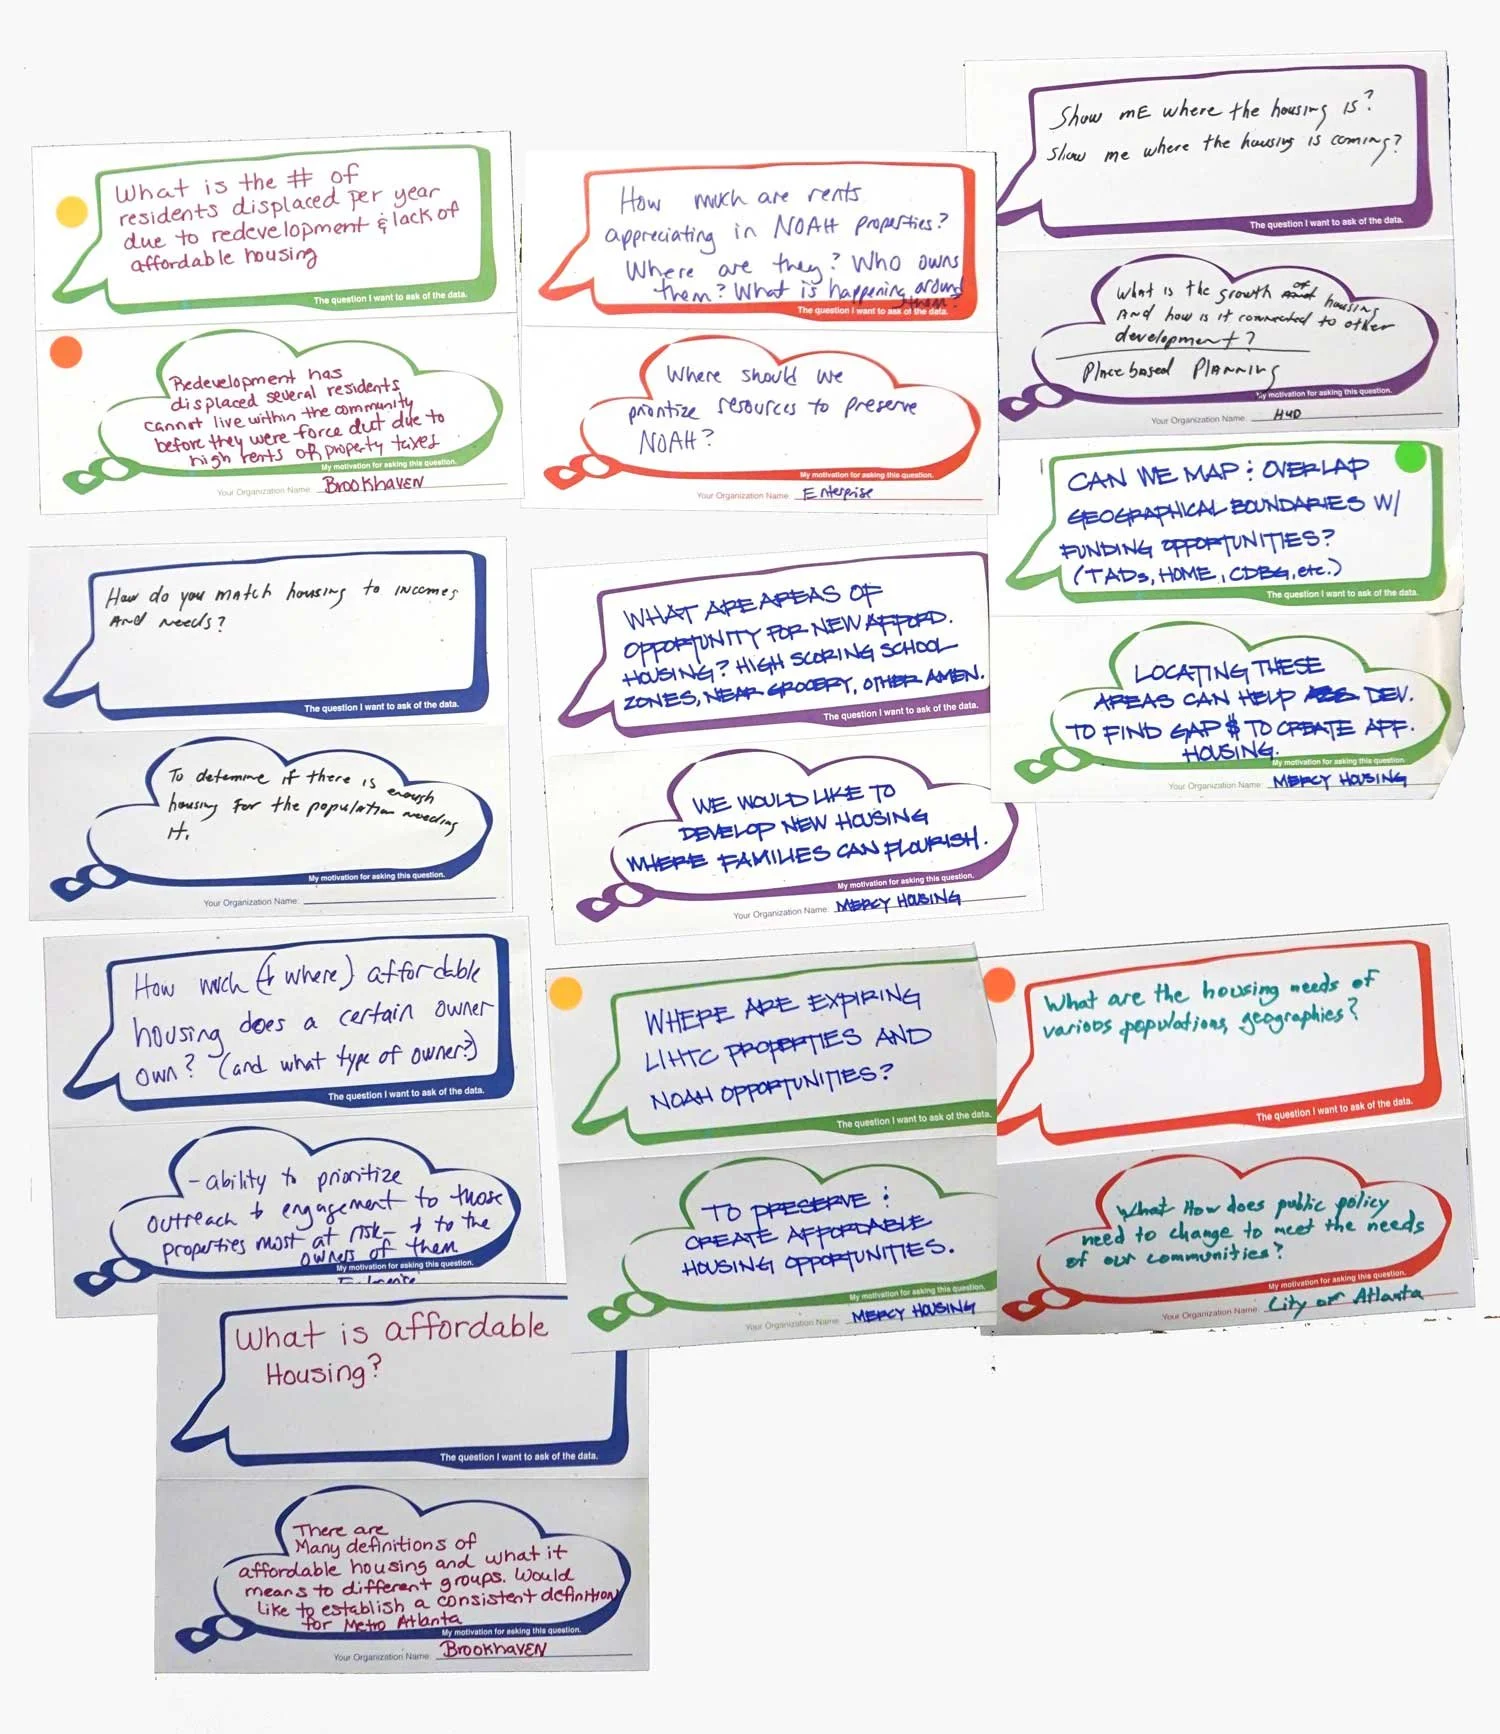 What is the # of
residents displaced per year
due to redevelopment & lack of
affordable housing
The question I want to ask of the data.
Redevelopment has
displaced several residents
cannot live within the community
before they were force dut due to
high rents or property taxes
My motivation for asking this question.
Your Organization Name: Brookhaven
How much are rents
appreciating in NOAH properties?
Where are they? Who owns
them? What is happening around
them?
The question I want to ask of the data.
Where should we
prioritize resources to preserve
NOAH?
My motivation for asking this question.
Your Organization Name: Enterprise
Show me where the housing is?
Show me where the housing is coming?
The question I want to ask of the data.
What is the growth of housing
And how is it connected to other
development?
Place based Planning
My motivation for asking this question.
Your Organization Name: HUD
CAN WE MAP: OVERLAP
GEOGRAPHICAL BOUNDARIES W/
FUNDING OPPORTUNITIES?
(TADs, HOME, CDBG, etc.)
The question I want to ask of the data.
LOCATING THESE
AREAS CAN HELP DEV.
TO FIND GAP $ TO CREATE AFF.
HOUSING.
My motivation for asking this question.
Your Organization Name: MERCY HOUSING
How do you match housing to incomes
And needs?
The question I want to ask of the data.
To detemine if there is enough
housing for the population needing
it.
My motivation for asking this question.
Your Organization Name:
WHAT ARE AREAS OF
OPPORTUNITY FOR NEW AFFORD.
HOUSING? HIGH SCORING SCHOOL
ZONES, NEAR GROCERY, OTHER AMEN.
The question I want to ask of the data.
WE WOULD LIKE TO
DEVELOP NEW HOUSING
WHERE FAMILIES CAN FLOURISH.
My motivation for asking this question.
Your Organization Name: MERCY HOUSING
How much (+ where) affordable
housing does a certain owner
own? (and what type of owner?)
The question I want to ask of the data.
- ability to prioritize
outreach + engagement to those
properties most at risk - + to the
owners of them
My motivation for asking this question.
WHERE ARE EXPIRING
LIHTC PROPERTIES AND
NOAH OPPORTUNITIES?
The question I want to ask of the data.
TO PRESERVE :
CREATE AFFORDABLE
HOUSING OPPORTUNITIES.
My motivation for asking this question.
Your Organization Name: MERCY HOUSING
What are the housing needs of
various populations, geographies?
The question I want to ask of the data.
What How does public policy
need to change to meet the needs
of our communities?
My motivation for asking this question.
Your Organization Name: City of Atlanta
What is affordable
Housing?
The question I want to ask of the data.
There are
Many definitions of
affordable housing and what it
means to different groups. Would
like to establish a consistent definition
for Metro Atlanta
My motivation for asking this question.
Your Organization Name: Brookhaven